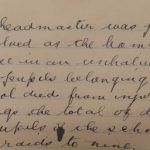 headmaster was f
lued as the hom
see in an unhal
pupils belonging
ol died from inju
gs the total of d
upils of the scho
raids to nine.